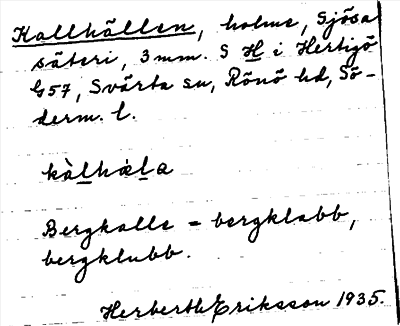 Kallhällen, holme, Sjösa
säteri, 3 mm. S H i Hertigö
G57, Svärta sn, Rönö hd, Sö-
derm. l.
kàlhæla
Bergkalle = bergklabb,
bergklubb.
Herberth Eriksson 1935.